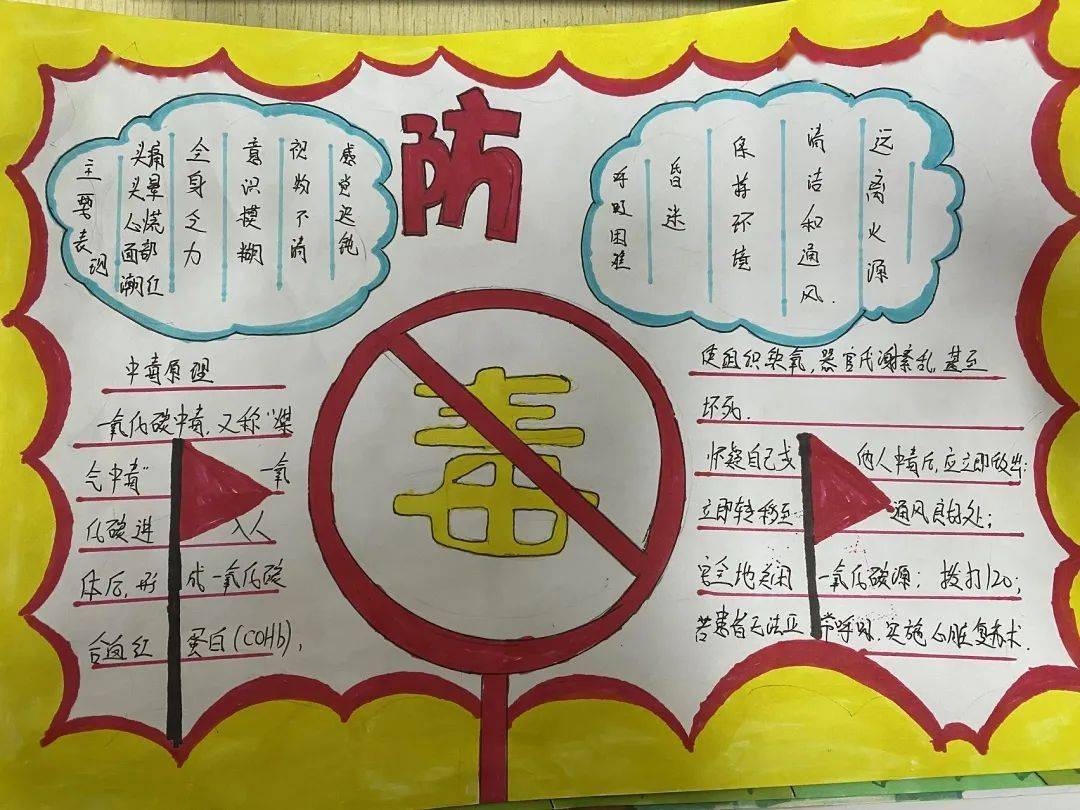 防
毒
主要表现
头痛
头晕
心慌
面部
潮红
全身乏力
意识模糊
视物不清
感觉迟钝
呼吸困难
昏迷
保持环境
清洁和通风.
远离火源
中毒原理
一氧化碳中毒,又称“煤
气中毒”一氧
化碳进入人
体后,形成一氧化碳
合血红蛋白(COHb),
使组织缺氧,器官代谢紊乱,甚至
坏死.
怀疑自己或他人中毒后,应立即
立即转移至通风良好处;
安全地关闭一氧化碳源;拨打120;
若患者无法正常呼吸,实施心脏复苏术.